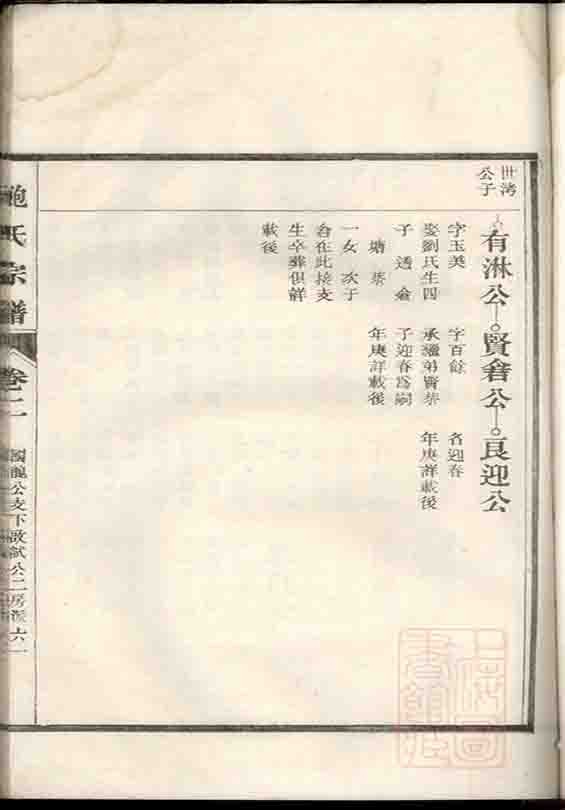 世濤
公子
有淋公
賢畲公
良迎公
字玉美
娶劉氏生四
子 透 畲
塘 棻
一女 次子
畲在此接支
生卒葬俱詳
載後
字百餘
承繼弟賢棻
子迎春爲嗣
年庚詳載後
名迎春
年庚詳載後
鮑氏宗譜
卷二
國龍公支下啟試公二房派 六一
上海圖
書館藏